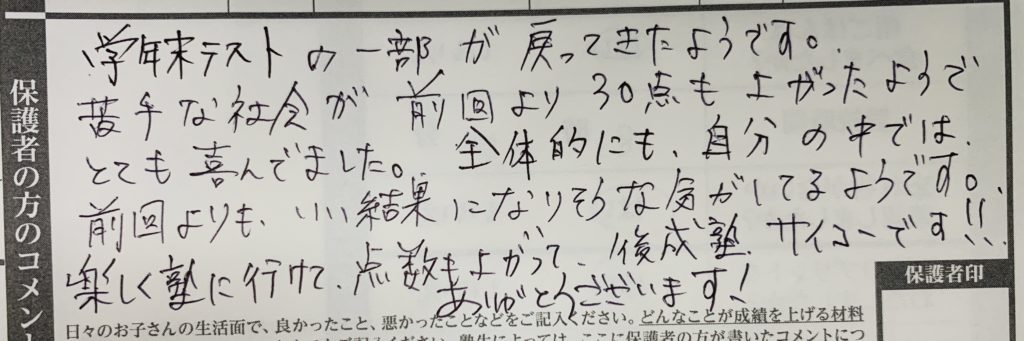 保護者の方のコメント
学年末テストの一部が戻ってきたようです。
苦手な社会が前回より30点も上がったようで
とても喜んでました。全体的にも、自分の中では、
前回よりも、いい結果になりそうな気がしてるようです。
楽しく塾に行けて、点数も上がって、俊成塾サイコーです!!
ありがとうございます!
保護者印
日々のお子さんの生活面で、良かったこと、悪かったことなどをご記入ください。どんなことが成績を上げる材料
ここに保護者の方が書いたコメントにつ